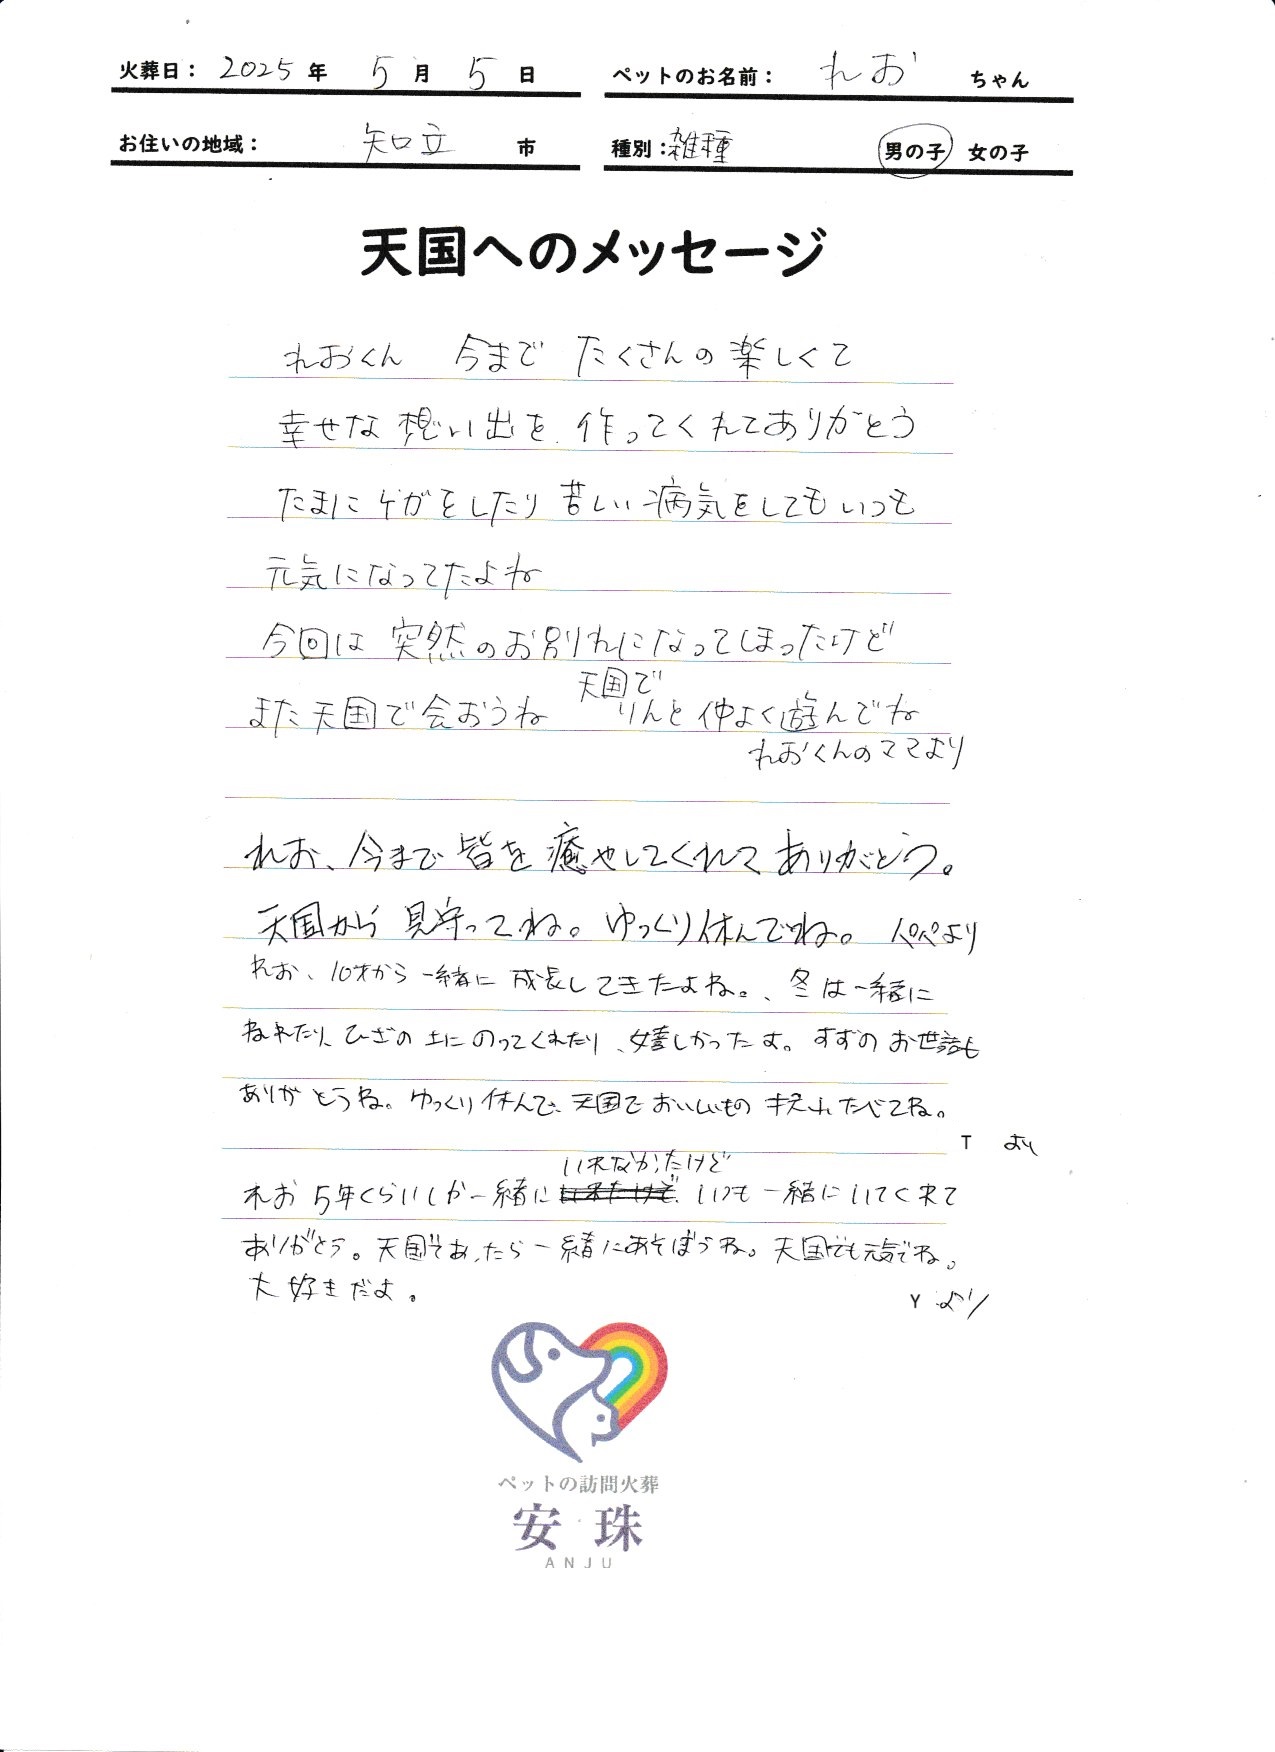 火葬日： 2025 年 5 月 5 日 ペットのお名前： れお ちゃん
お住いの地域： 知立 市 種別：雑種 男の子 女の子
天国へのメッセージ
れおくん 今まで たくさんの楽しくて
幸せな想い出を 作ってくれてありがとう
たまにケガをしたり苦しい病気をしてもいつも
元気になってたよね
今回は 突然のお別れになってしまったけど
また天国で会おうね 天国で りんと仲よく遊んでね
れおくんのママより
れお、今まで皆を癒やしてくれてありがとう。
天国から見守ってね。ゆっくり休んでね。 ペペより
れお、10才から一緒に成長してきたよね。、冬は一緒に
ねれたり、ひざの上にのってくれたり、嬉しかったよ。すずのお世話も
ありがとうね。ゆっくり休んで、天国でおいしいもの たべてね。
T より
いれなかったけど
れお 5年くらいしか一緒に いつも一緒にいてくれて
ありがとう。天国であったら一緒にあそぼうね。天国でも元気でね。
大好きだよ。
Y より
ペットの訪問火葬
安珠
ANJU